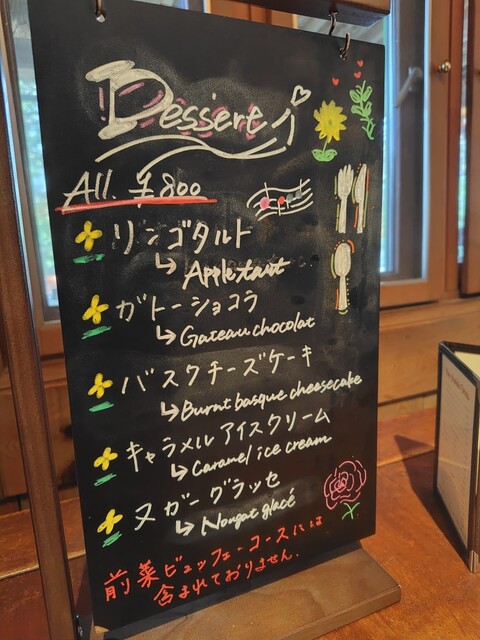 Dessert
All. ¥800
リンゴタルト
↳ Apple tart
ガトーショコラ
↳ Gateau chocolat
バスクチーズケーキ
↳ Burnt basque cheesecake
キャラメルアイスクリーム
↳ Caramel ice cream
ヌガーグラッセ
↳ Nougat glacé
前菜ビュッフェ・コースには
含まれておりません.